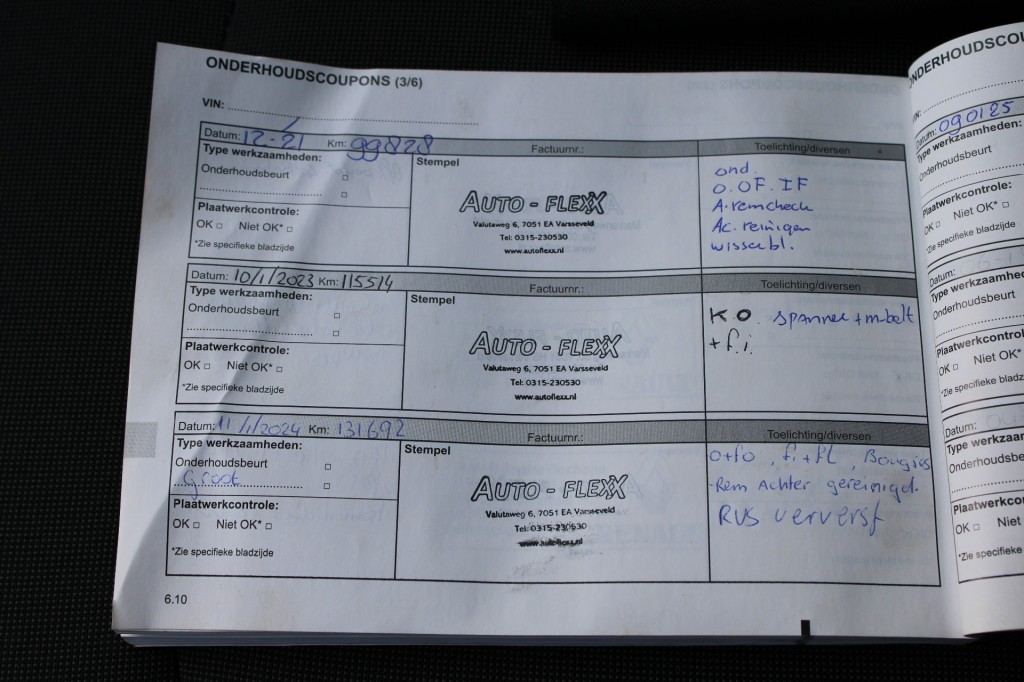 ONDERHOUDSCOUPONS (3/6)
VIN:
Datum: 12-21 Km: 99828 Factuurnr.: Toelichting/diversen
Type werkzaamheden: Stempel
Onderhoudsbeurt
Plaatwerkcontrole:
OK Niet OK*
*Zie specifieke bladzijde
AUTO - FLEXX
Valutaweg 6, 7051 EA Varsseveld
Tel: 0315-230530
www.autoflexx.nl
ond.
O. OF. IF
A. remcheck
Ac. reinigen
wisserbl.
Datum: 10/1/2023 Km: 115514 Factuurnr.: Toelichting/diversen
Type werkzaamheden: Stempel
Onderhoudsbeurt
Plaatwerkcontrole:
OK Niet OK*
*Zie specifieke bladzijde
AUTO - FLEXX
Valutaweg 6, 7051 EA Varsseveld
Tel: 0315-230530
www.autoflexx.nl
K.O. spanner + m-belt
+ f.i.
Datum: 11/1/2024 Km: 131692 Factuurnr.: Toelichting/diversen
Type werkzaamheden: Stempel
Onderhoudsbeurt
Groot
Plaatwerkcontrole:
OK Niet OK*
*Zie specifieke bladzijde
AUTO - FLEXX
Valutaweg 6, 7051 EA Varsseveld
Tel: 0315-230530
www.autoflexx.nl
O+fo, fi+fL, Bougies
Rem Achter gereinigd.
RVS ververst
6.10
ONDERHOUDSCOU
Datum: 090125
Type werkzaamheden
Onderhoudsbeurt
Plaatwerkcontrole:
OK Niet OK*
*Zie specifieke
Datum:
Type werkzaam
Onderhoudsbeu
Plaatwerkcontrol
OK Niet OK*
*Zie specifieke
Datum:
Type werkzaa
Onderhoudsbe
Plaatwerkcont
OK Niet
*Zie specifieke